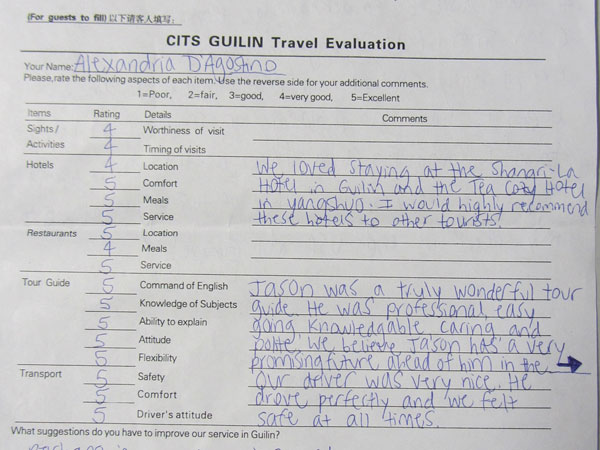 (For guests to fill) 以下请客人填写:
CITS GUILIN Travel Evaluation
Your Name: Alexandria D'Agostino
Please,rate the following aspects of each item. Use the reverse side for your additional comments.
1=Poor, 2=fair, 3=good, 4=very good, 5=Excellent
Items Rating Details Comments
Sights / 4 Worthiness of visit
Activities 4 Timing of visits
Hotels 4 Location We loved staying at the Shangri-La
5 Comfort Hotel in Guilin and the Tea Cozy Hotel
5 Meals in yangshuo. I would highly recommend
5 Service these hotels to other tourists.
Restaurants 5 Location
4 Meals
5 Service
Tour Guide 5 Command of English Jason was a truly wonderful tour
5 Knowledge of Subjects guide. He was professional, easy
5 Ability to explain going, knowledgable, caring and
5 Attitude polite. We believe Jason has a very
5 Flexibility promising future ahead of him in the →
Transport 5 Safety Our driver was very nice. He
5 Comfort drove perfectly and we felt
5 Driver's attitude safe at all times.
What suggestions do you have to improve our service in Guilin?